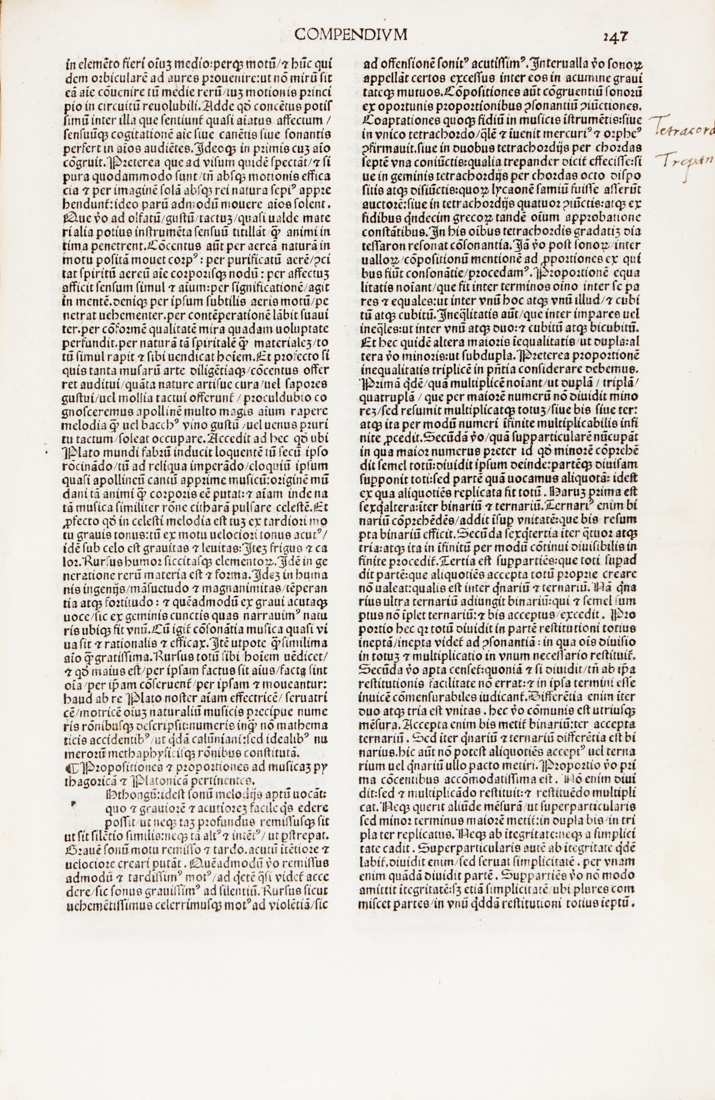 COMPENDIVM
247
in elemēto fieri oiuꝫ medio:perqꝫ motū/⁊ hūc qui
dem orbicularē ad aures prouenire:ut nō mirū sit
eā aie cōuenire tū medie rerū/tuꝫ motionis princi
pio in circuitū reuolubili. Adde qd cōcētus potis
simū inter illa que sentiunt quasi aiatus affectum/
sensuūqꝫ cogitationē aie siue canētis siue sonantis
perfert in aios audiētes. Ideoqꝫ in primis cuꝫ aio
cōgruit. Preterea que ad visum quidē spectāt/⁊ si
pura quodammodo sunt/tn̄ absqꝫ motionis effica
cia ⁊ per imaginē solā absqꝫ rei natura sepi⁹ appre
hendunt:ideo parū admodū mouere aios solent.
Que v̄o ad olfatū/gustū/tactuꝫ/quasi ualde mate
rialia potius instrumēta sensuū titillāt q̄ animi in
tima penetrent. Cōcentus aūt per aereā naturā in
motu positā mouet corp⁹: per purificatū aerē/ꝯci
tat spiritū aereū aie corporisqꝫ nodū: per affectuꝫ
afficit sensum simul ⁊ aium:per significationē/agit
in mentē.deniqꝫ per ipsum subtilis aeris motū/pe
netrat uehementer.per contēperationē labit suaui
ter.per cōformē qualitatē mira quadam uoluptate
perfundit.per naturā tā spiritalē q̄ materialeꝫ/to
tū simul rapit ⁊ sibi uendicat hoiem. Et profecto si
quis tanta musarū arte diligētiaqꝫ/cōcentus offer
ret auditui/quāta nature artisue cura/uel sapores
gustui/uel mollia tactui offerunt/proculdubio co
gnosceremus apollinē multo magis aium rapere
melodia q̄ uel bacch⁹ vino gustū/uel uenus pruri
tu tactum/soleat occupare. Accedit ad hec qd ubi
Plato mundi fabrū inducit loquentē tū secū ipso
rōcinādo/tū ad reliqua imperādo/eloquiū ipsum
quasi apollineū cantū apprime musicū:origine mū
dani tā animi q̄ corporis eē putat:⁊ aiam inde na
tā musica similiter rōne citharā pulsare celestē. Et
ꝓfecto qd in celesti melodia est tuꝫ ex tardiori mo
tu grauis tonus:tū ex motu uelociori tonus acut⁹/
idē sub celo est grauitas ⁊ leuitas: Iteꝫ frigus ⁊ ca
lor. Rursus humor siccitasqꝫ elementoꝝ. Idē in ge
neratione rerū materia est ⁊ forma. Ideꝫ in huma
nis ingenijs/māsuetudo ⁊ magnanimitas/tēperan
tia atqꝫ fortitudo: ⁊ quēadmodū ex graui acutaqꝫ
uoce/sic ex geminis cunctis quas narrauim⁹ natu
ris ubiqꝫ fit vnū. Cū igit̄ cōsonātia musica quasi vi
ua sit ⁊ rationalis ⁊ efficax. Ite utpote q̄ simillima
aio q̄ gratissima. Rursus totū sibi hoiem uēdicet/
⁊ qd maius est/per ipsam factus sit aius/facta sint
oia/per ipam cōseruent̄/per ipsam ⁊ moueantur:
haud ab re Plato noster aiam effectricē/seruatri
cē/motricē oiuꝫ naturaliū musicis precipue nume
ris rōnibusqꝫ descripsit:numeris inq̄ nō mathema
ticis accidentib⁹/ut qdā calūniant̄:sed idealib⁹ nu
merorū methaphysicisqꝫ rōnibus constitutā.
¶Propositiones ⁊ proportiones ad musicaꝫ py
thagoricā ⁊ Platonicā pertinentes.
Phthongū:idest sonū melodijs aptū uocāt:
quo ⁊ grauiorē ⁊ acutiorez facile qs edere
possit/ut neqꝫ taꝫ profundus remissusqꝫ sit
ut sit silētio similis:neqꝫ tā alt⁹ ⁊ intēt⁹/ut pstrepat.
Grauē sonū motu remisso ⁊ tardo.acutū itētiore ⁊
uelociore creari putāt. Quēadmodū v̄o remissus
admodū ⁊ tardissim⁹ mot⁹/ad qetē qsi videt̄ acce
dere/sic sonus grauissim⁹ ad silentiū. Rursus sicut
uehemētissimus celerrimusqꝫ mot⁹ ad violētiā/sic
ad offensionē sonit⁹ acutissim⁹. Interualla v̄o sonoꝝ
appellāt certos excessus inter eos in acumine graui
tateqꝫ mutuos. Cōpositiones aūt cōgruentiū sonorū
ex oportunis proportionibus ꝯsonantiū ꝯiūctiones.
Coaptationes quoqꝫ fidiū in musicis istrumētis:siue
in vnico tetrachordo/qlē ⁊ iuenit mercuri⁹ ⁊ orphe⁹
ꝯfirmauit.siue in duobus tetrachordijs per chordas
septē vna coniūctis:qualia trepander dicit̄ effecisse:si
ue in geminis tetrachordijs per chordas octo dispo
sitis atqꝫ disiūctis:quoꝝ lycaonē samiū fuisse asserūt
auctorē:siue in tetrachordijs quatuor ꝯiūctis:atqꝫ ex
fidibus qndecim grecoꝝ tandē oium approbatione
constātibus. In his oibus tetrachordis gradatiꝫ dia
tessaron resonat cōsonantia. Iā v̄o post sonoꝝ/inter
ualloꝝ/cōpositionū mentionē ad ꝓportiones ex qui
bus fiūt consonātie/procedam⁹. Proportionē equa
litatis noiant/que fit inter terminos oino inter se pa
res ⁊ equales:ut inter vnū hoc atqꝫ vnū illud/⁊ cubi
tū atqꝫ cubitū. Ineqlitatis aūt/que inter impares uel
ineqles:ut inter vnū atqꝫ duo:⁊ cubitū atqꝫ bicubitū.
Et hec quidē altera maioris ieqūalitatis/ut dupla:al
tera v̄o minoris:ut subdupla. Preterea proportionē
inequalitatis triplicē in pn̄tia considerare debemus.
Primā qdē/quā multiplicē noiant/ut duplā/triplā/
quatruplā/que per maiorē numerū nō diuidit mino
reꝫ/sed resumit multiplicatqꝫ totuꝫ/siue bis siue ter:
atqꝫ ita per modū numeri infinite multiplicabilis infi
nite ꝓcedit. Secūdā v̄o/quā supparticularē nūcupāt
in qua maior numerus preter id qd minorē cōprehē
dit semel totū:diuidit ipsum deinde:partēqꝫ diuisam
supponit toti:sed partē quā uocamus aliquotā: idest
ex qua aliquotiēs replicata fit totū. Haruꝫ prima est
sexqaltera:iter binariū ⁊ ternariū. Ternari⁹ enim bi
nariū cōprehēdēs/addit isup vnitatē:que bis resum
pta binariū efficit. Secūda sexqtertia iter qtuor atqꝫ
tria:atqꝫ ita in ifinitū per modū cōtinui diuisibilis in
finite procedit. Tertia est suppartiēs:que toti supad
dit partē:que aliquotiēs accepta totū proprie creare
nō ualeat:qualis est inter qnariū ⁊ ternariū. Nā qna
rius ultra ternariū adiungit binariū:qui ⁊ semel sum
ptus nō īplet ternariū:⁊ bis acceptus/excedit. Pro
portio hec qr totū diuidit in partē restitutioni totius
ineptā/inepta videt̄ ad ꝯsonantiā: in qua ois diuisio
in totuꝫ ⁊ multiplicatio in vnum necessario restituit̄.
Secūda v̄o apta censet̄:quoniā ⁊ si diuidit/tn̄ ab ipa
restitutionis facilitate nō errat:⁊ in ipsa termini esse
inuicē cōmensurabiles iudicant̄. Differētia enim iter
duo atqꝫ tria est vnitas. hec v̄o cōmunis est utriusqꝫ
mēsura. Accepta enim bis metit̄ binariū:ter accepta
ternariū. Sed iter qnariū ⁊ ternariū differētia est bi
narius.hic aūt nō potest aliquotiēs accept⁹ uel terna
rium uel qnariū ullo pacto metiri. Proportio v̄o pri
ma cōcentibus accōmodatissima est. Nō enim diui
dit:sed ⁊ multiplicādo restituit:⁊ restituēdo multipli
cat. Neqꝫ querit aliūde mēsurā/ut superparticularis
sed minor terminus maiorē metit̄:in dupla bis/in tri
pla ter replicatus. Neqꝫ ab itegritate:neqꝫ a simplici
tate cadit. Superparticularis autē ab itegritate qdē
labit̄.diuidit enim/sed seruat simplicitatē. per vnam
enim quādā diuidit partē. Suppartiēs v̄o nō modo
amittit itegritatē:sꝫ etiā simplicitatē/ubi plures com
miscet partes/in vnū qddā restitutioni totius ieptū.
Tetracord